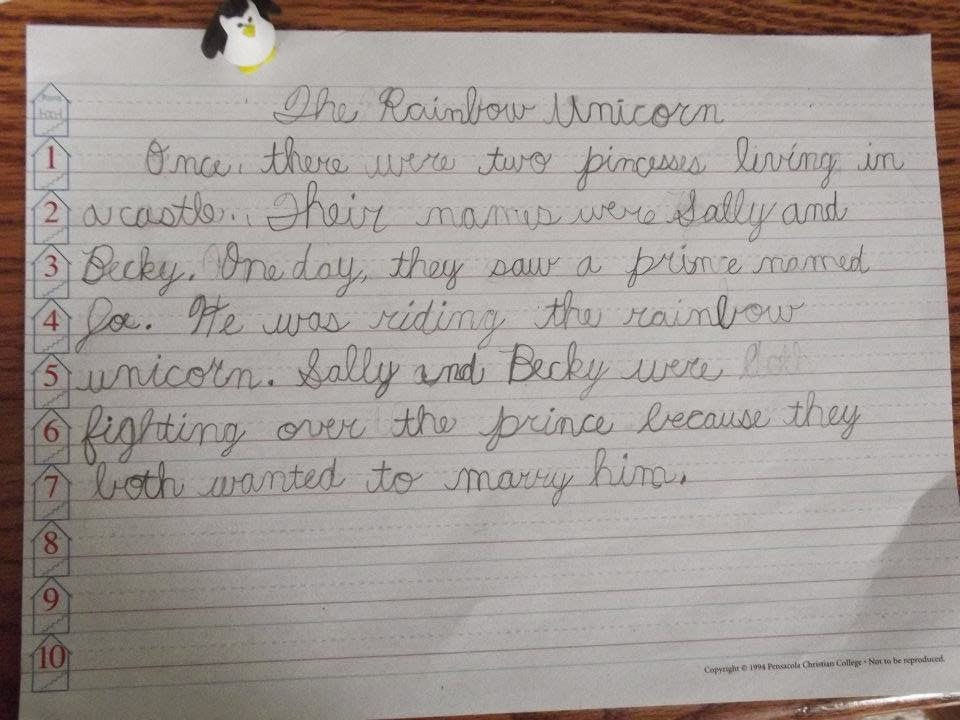 The Rainbow Unicorn
1 Once, there were two pincesses living in
2 a castle. Their names were Sally and
3 Becky. One day, they saw a prince named
4 Joe. He was riding the rainbow
5 unicorn. Sally and Becky were
6 fighting over the prince because they
7 both wanted to marry him.
8
9
10
Copyright © 1994 Pensacola Christian College • Not to be reproduced.